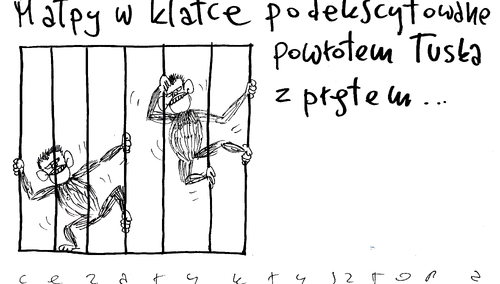 Małpy w klatce podekscytowane
powrotem Tuska
z prętem...